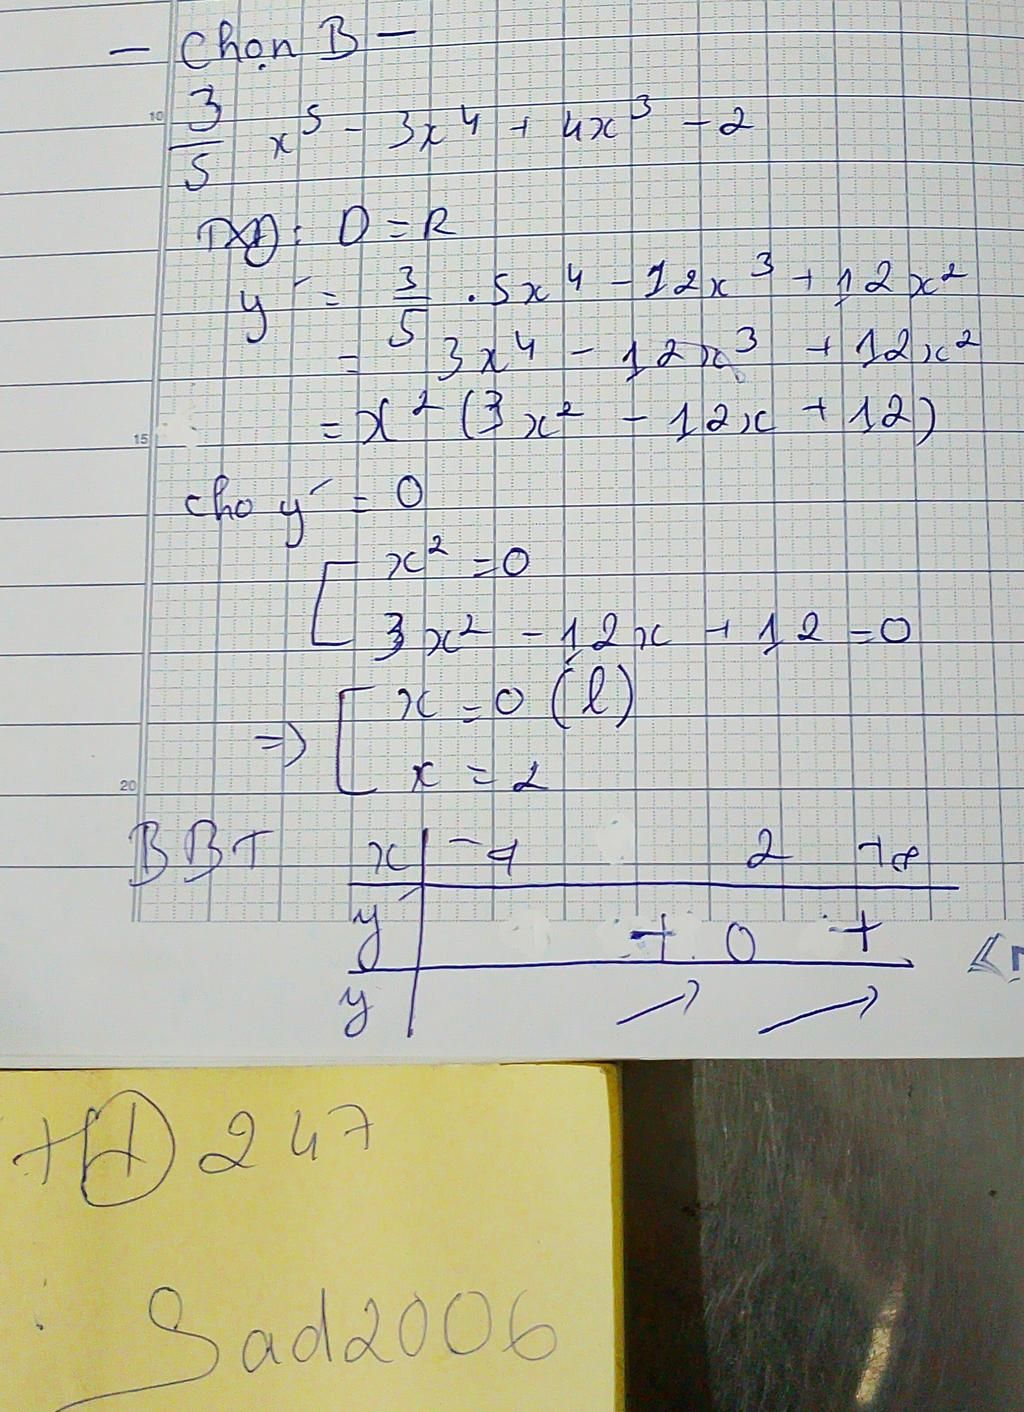 - Chọn B -
10
3/5 x⁵ - 3x⁴ + 4x³ - 2
TXĐ: D = R
y' = 3/5 . 5x⁴ - 12x³ + 12x²
= 3x⁴ - 12x³ + 12x²
15
= x² (3x² - 12x + 12)
cho y' = 0
[ x² = 0
3x² - 12x + 12 = 0
=> [ x = 0 (l)
x = 2
20
BBT
x | -∞ 2 +∞
y' | + 0 +
y | ↗ ↗
247
Sad2006